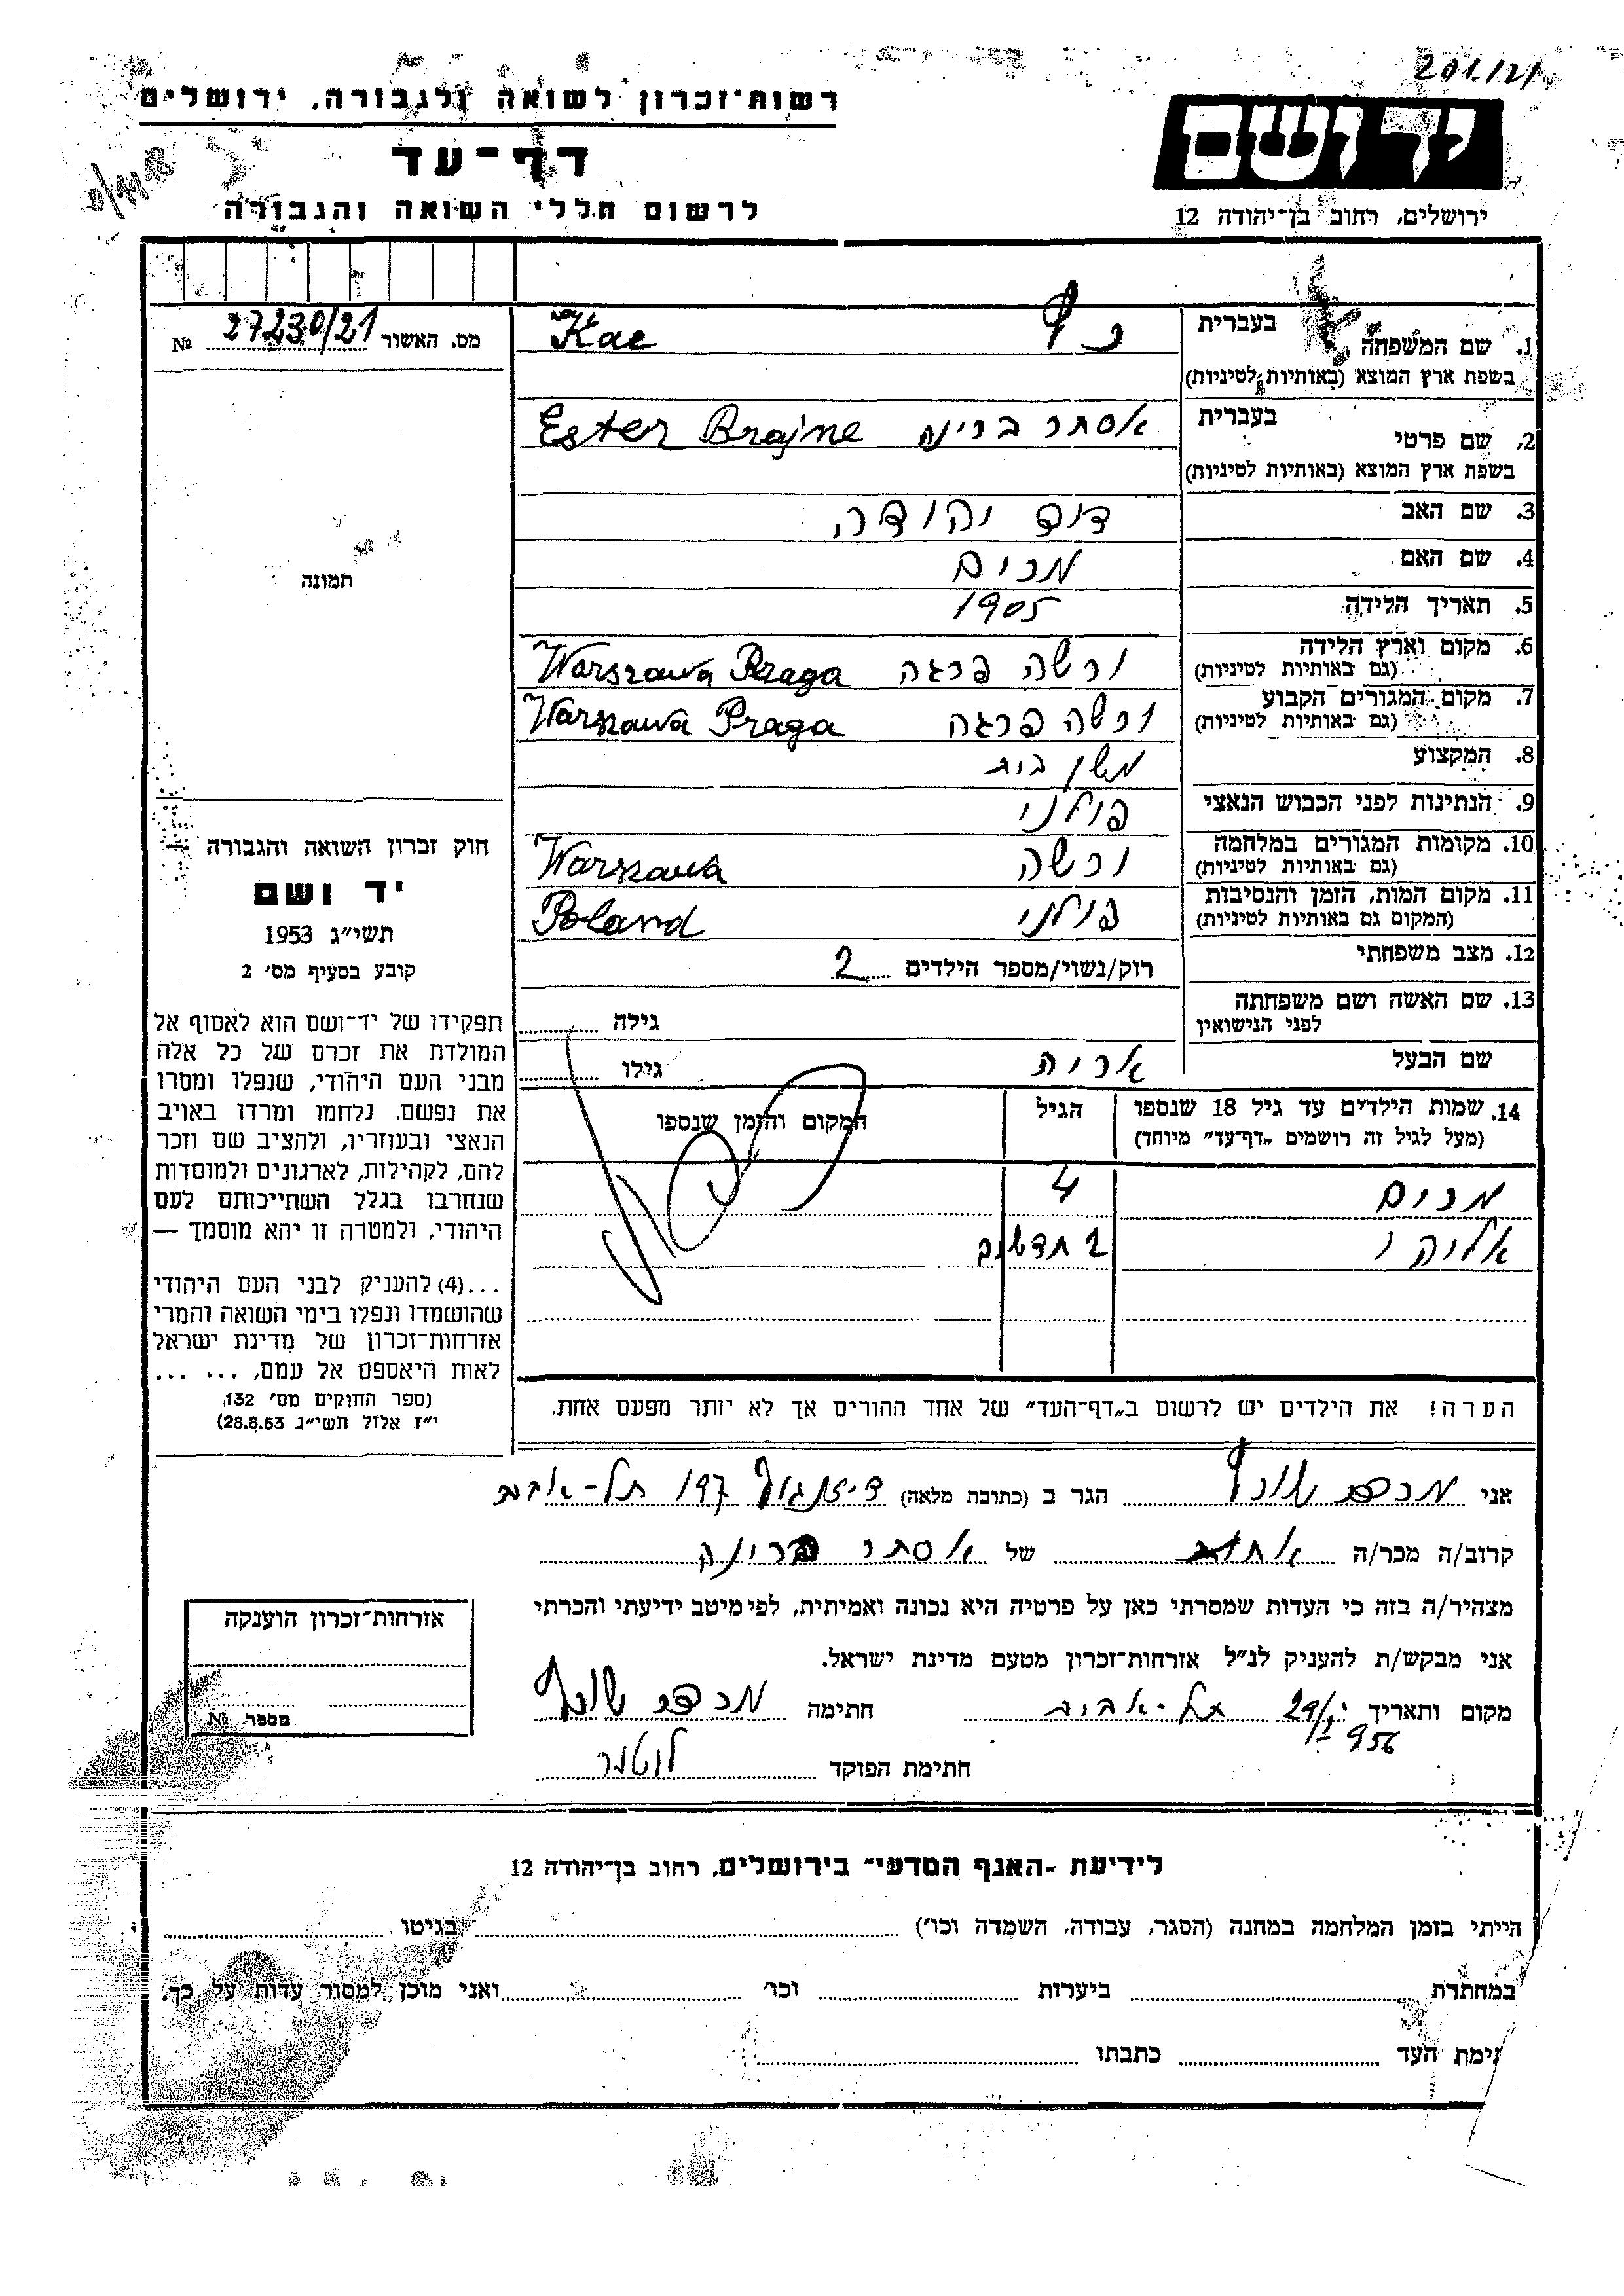 רשות־זכרון לשואה ולגבורה, ירושלים
דף־עד
לרשום חללי השואה והגבורה
יד ושם
ירושלים, רחוב בן־יהודה 12
מס. האשור 27230/21 №
1. שם המשפחה בעברית כץ Kac
בשפת ארץ המוצא (באותיות לטיניות)
2. שם פרטי בעברית אסתר בריינה Ester Brajne
בשפת ארץ המוצא (באותיות לטיניות)
3. שם האב דוד יהודה
4. שם האם מרים
5. תאריך הלידה 1905
6. מקום וארץ הלידה ורשה פרגה Warszawa Praga
(גם באותיות לטיניות)
7. מקום המגורים הקבוע ורשה פרגה Warszawa Praga
(גם באותיות לטיניות)
8. המקצוע משק בית
9. הנתינות לפני הכבוש הנאצי פולני
10. מקומות המגורים במלחמה ורשה Warszawa
(גם באותיות לטיניות)
11. מקום המות, הזמן והנסיבות פולני Poland
(המקום גם באותיות לטיניות)
12. מצב משפחתי רוק/נשוי/מספר הילדים 2
13. שם האשה ושם משפחתה
לפני הנישואין גילה
שם הבעל אריה גילו
14. שמות הילדים עד גיל 18 שנספו הגיל המקום והזמן שנספו
(מעל לגיל זה רושמים „דף־עד" מיוחד)
מרים 4
אליהו 2 חדשים
הערה! את הילדים יש לרשום ב„דף־העד" של אחד ההורים אך לא יותר מפעם אחת.
תמונה
חוק זכרון השואה והגבורה —
יד ושם
תשי״ג 1953
קובע בסעיף מס׳ 2
תפקידו של יד־ושם הוא לאסוף אל
המולדת את זכרם של כל אלה
מבני העם היהודי, שנפלו ומסרו
את נפשם, נלחמו ומרדו באויב
הנאצי ובעוזריו, ולהציב שם וזכר
להם, לקהילות, לארגונים ולמוסדות
שנחרבו בגלל השתייכותם לעם
היהודי, ולמטרה זו יהא מוסמך —
...(4) להעניק לבני העם היהודי
שהושמדו ונפלו בימי השואה והמרי
אזרחות־זכרון של מדינת ישראל
לאות היאספם אל עמם, ... ...
(ספר החוקים מס׳ 132,
י״ז אלול תשי״ג 28.8.53)
אני הגר ב (כתובת מלאה) דיזנגוף 197 תל-אביב
קרוב/ה מכר/ה אחות של אסתר בריינה
מצהיר/ה בזה כי העדות שמסרתי כאן על פרטיה היא נכונה ואמיתית, לפי מיטב ידיעתי והכרתי
אני מבקש/ת להעניק לנ״ל אזרחות־זכרון מטעם מדינת ישראל.
מקום ותאריך תל-אביב חתימה
956
חתימת הפוקד
אזרחות־זכרון הוענקה
מספר №
לידיעת -האגף המדעי- בירושלים, רחוב בן־יהודה 12
הייתי בזמן המלחמה במחנה (הסגר, עבודה, השמדה וכו׳) בגיטו
במחתרת ביערות וכו׳ ואני מוכן למסור עדות על כך.
ימת העד כתבתו